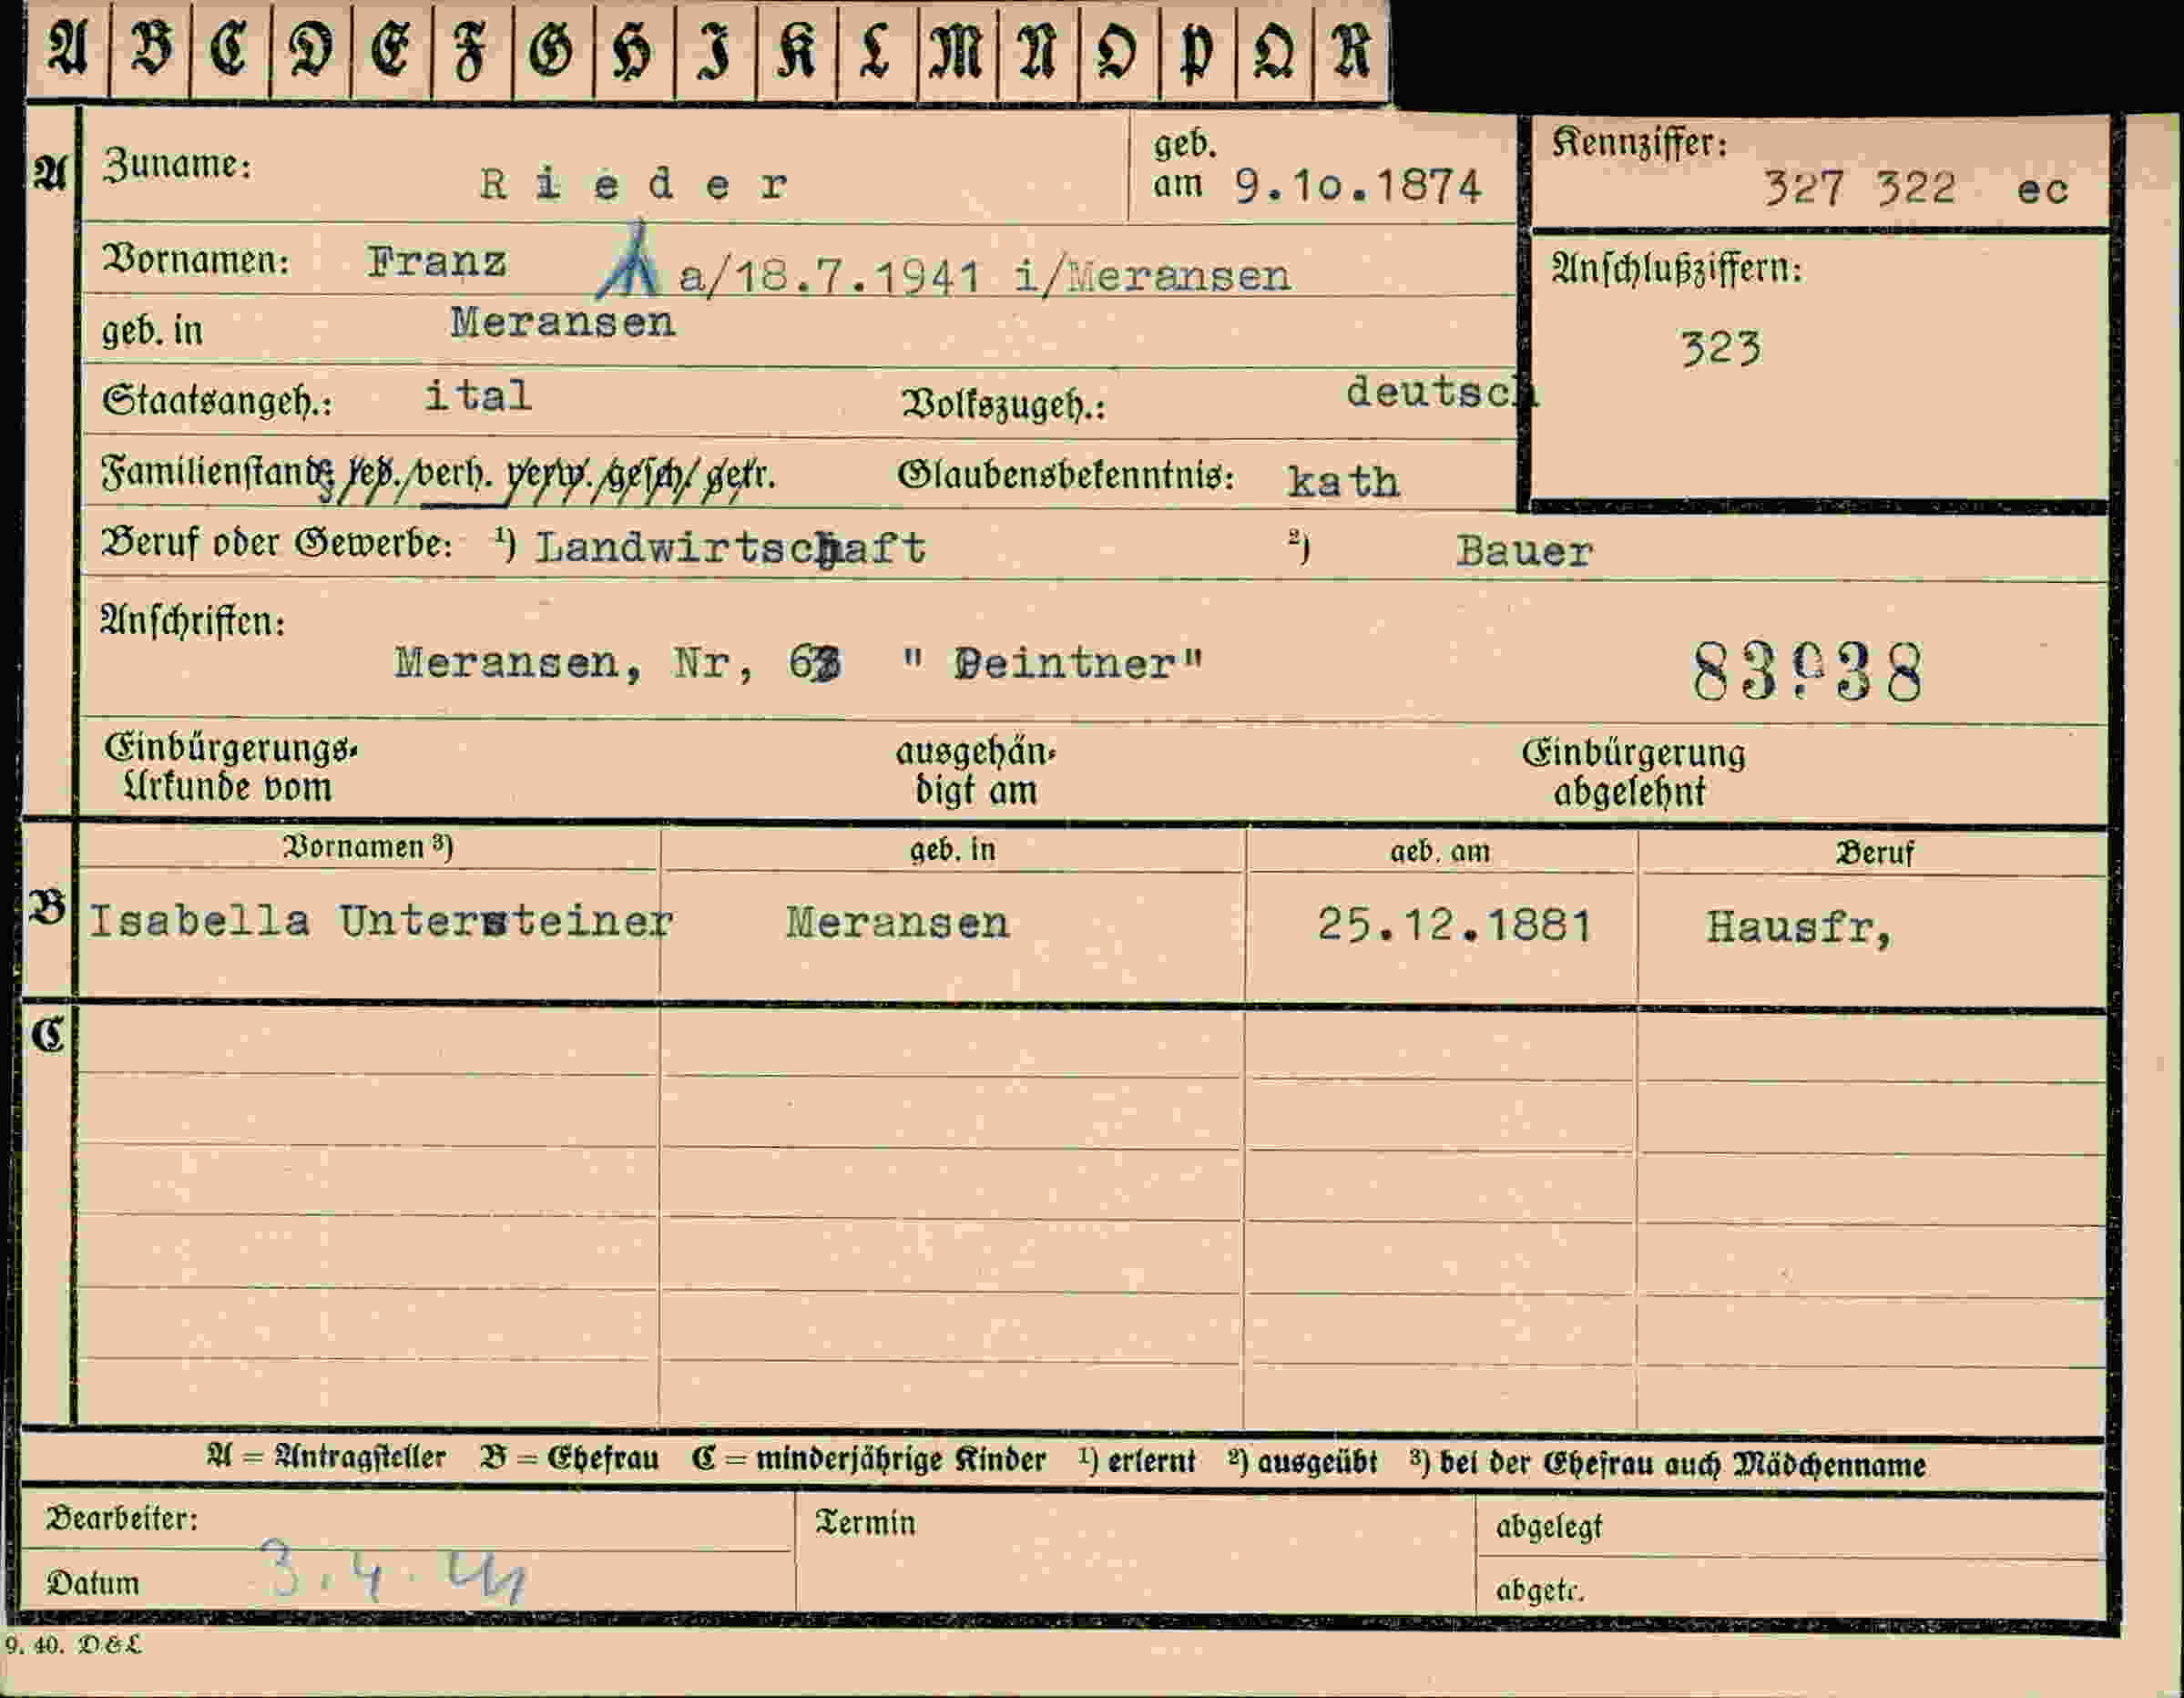 A B C D E F G H I K L M N O P Q R
A Zuname: Rieder geb. am 9.10.1874 Kennziffer: 327 322 ec
Vornamen: Franz a/18.7.1941 i/Meransen Anschlußziffern:
geb. in Meransen 323
Staatsangeh.: ital Volkszugeh.: deutsch
Familienstand: led. verh. verw. gesch. getr. Glaubensbekenntnis: kath
Beruf oder Gewerbe: ¹) Landwirtschaft ²) Bauer
Anschriften:
Meransen, Nr, " Deintner"
Einbürgerungs- ausgehän- Einbürgerung
Urkunde vom digt am abgelehnt
Vornamen ³) geb. in geb. am Beruf
B Isabella Untersteiner Meransen 25.12.1881 Hausfr,
C
A = Antragsteller B = Ehefrau C = minderjährige Kinder ¹) erlernt ²) ausgeübt ³) bei der Ehefrau auch Mädchenname
Bearbeiter: Termin abgelegt
Datum 3.4. abgetr.
9. 40. D&L